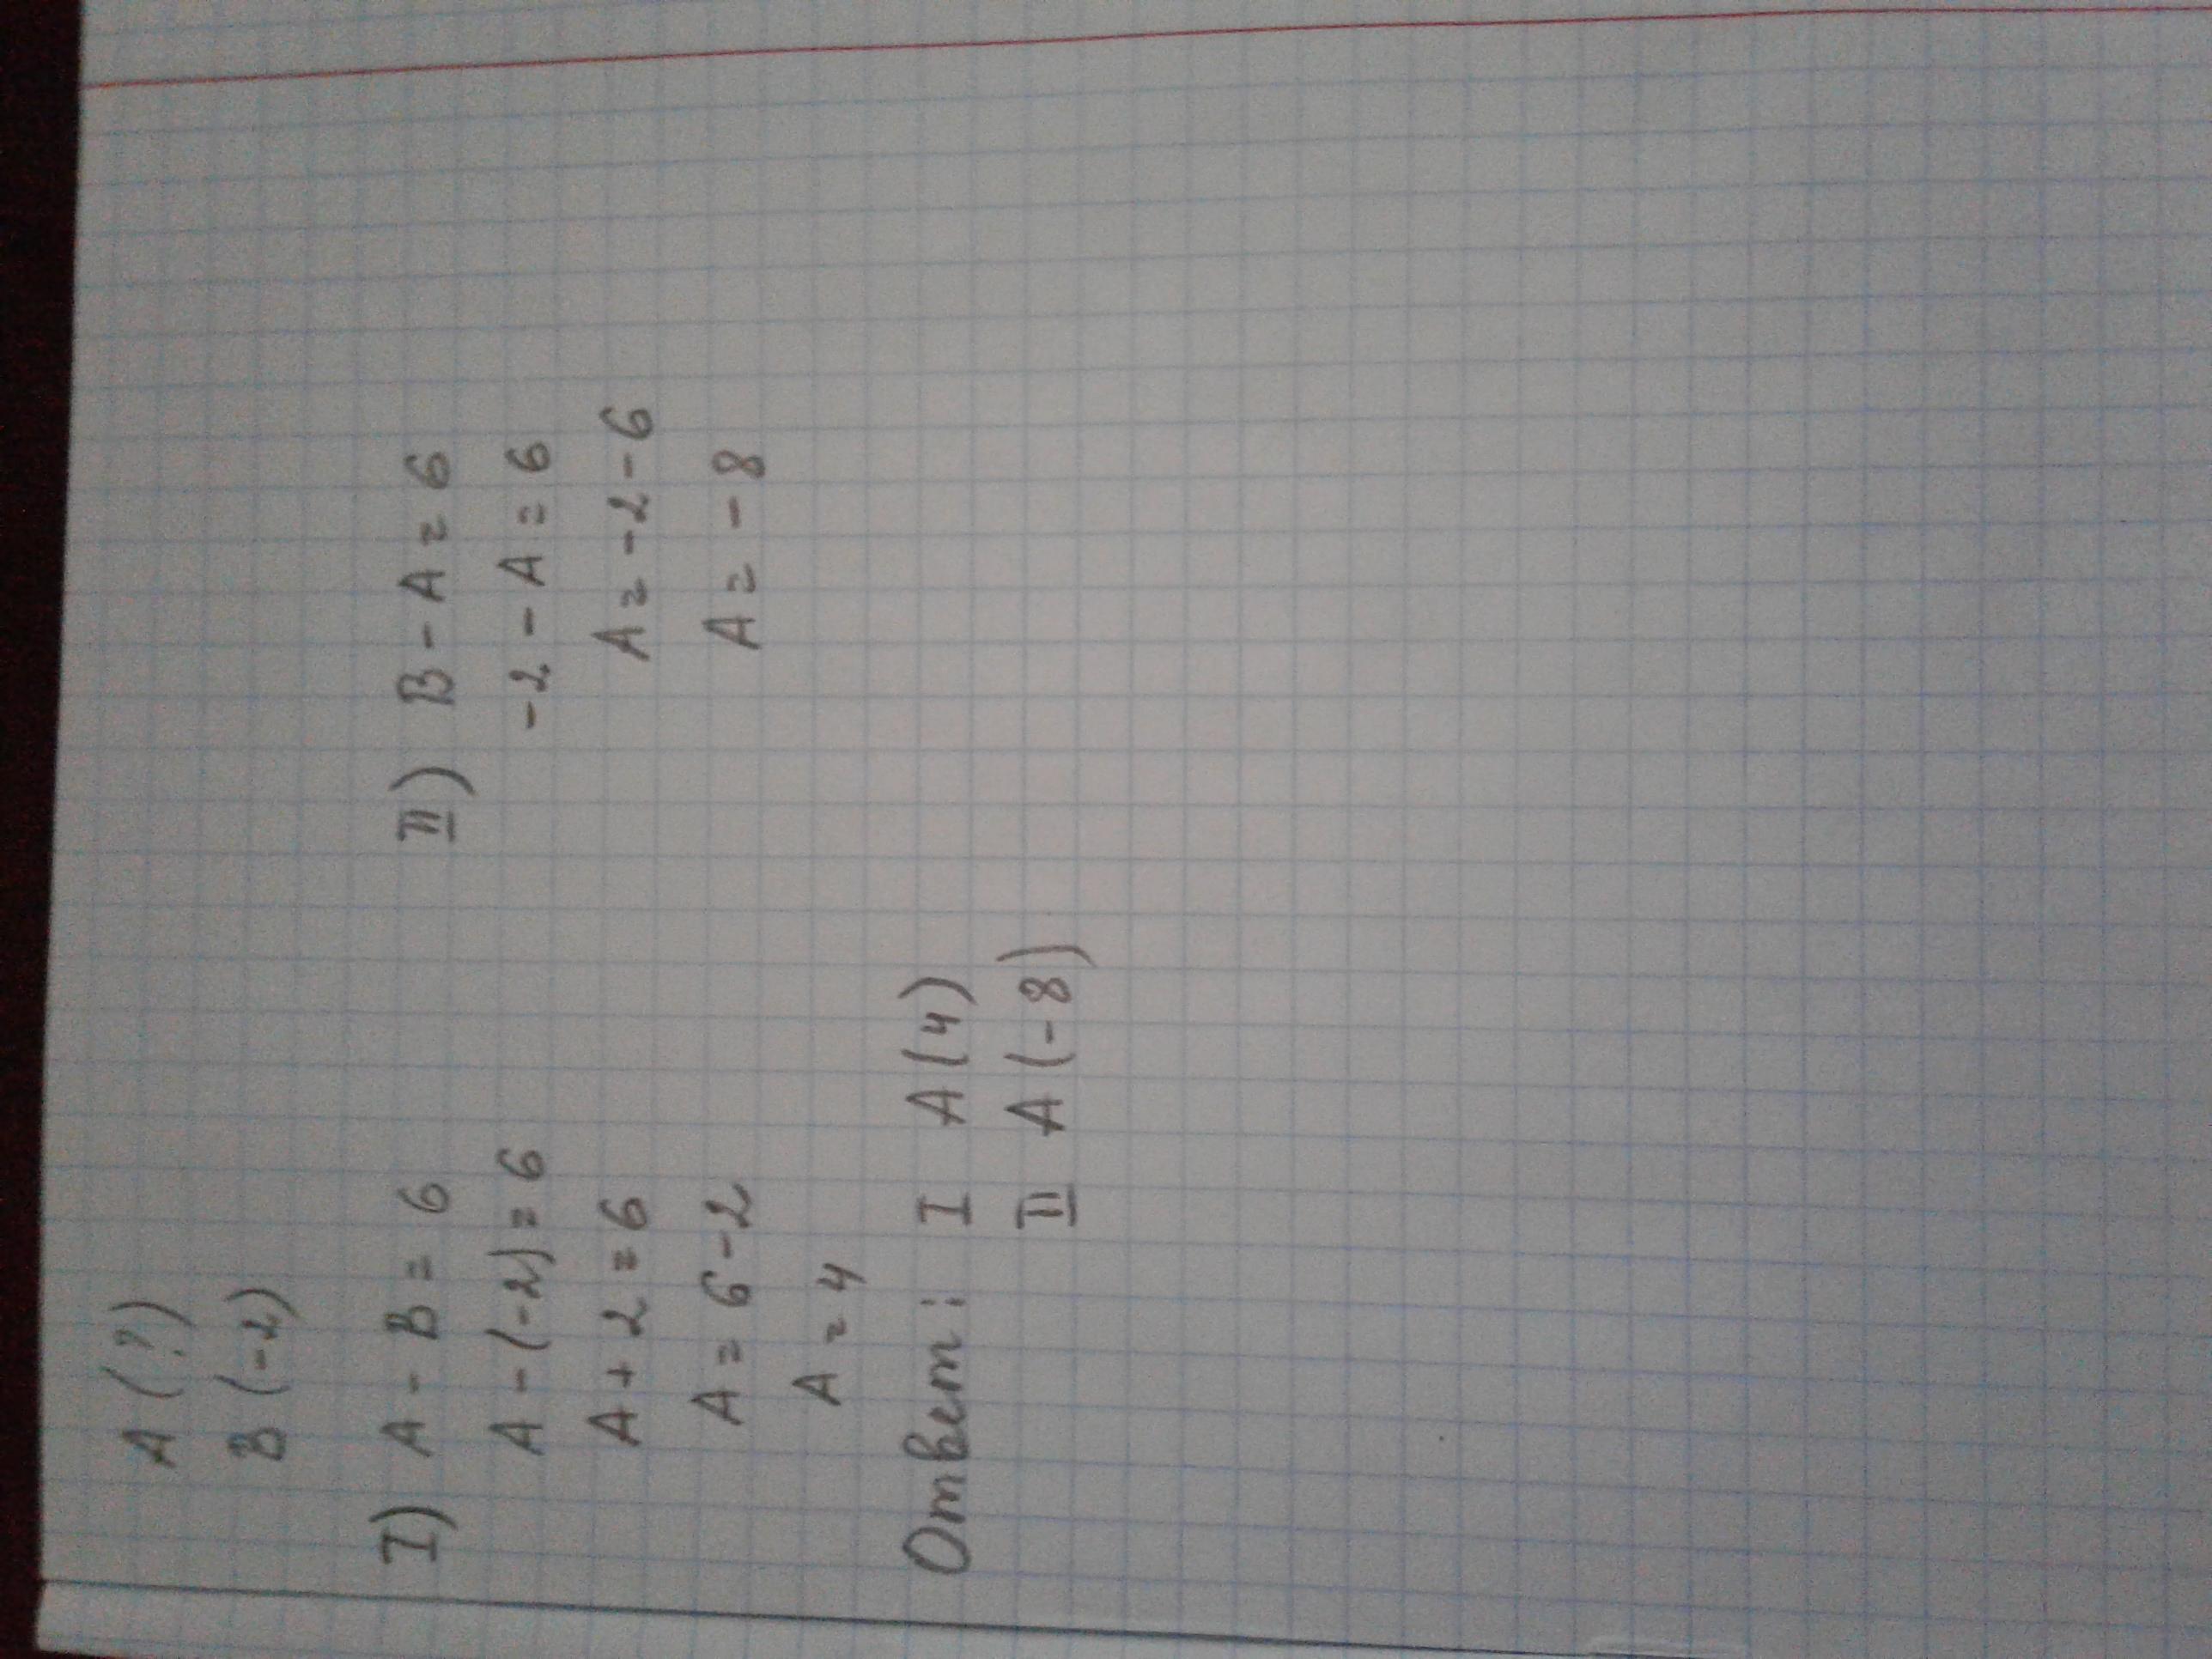 A (?)
B (-2)
I) A - B = 6
A - (-2) = 6
A + 2 = 6
A = 6 - 2
A = 4
II) B - A = 6
-2 - A = 6
A = -2 - 6
A = -8
Ответ: I A (4)
II A (-8)